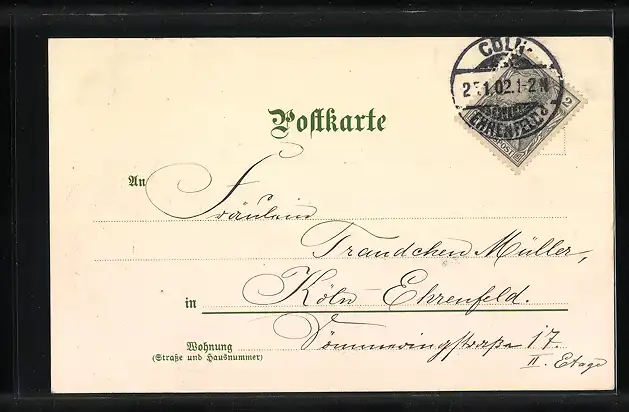 CÖLN-
2 .1.02.1-2N
EHRENFELD
Postkarte
An
Fräulein
Traudchen Müller,
in Köln-Ehrenfeld.
Wohnung Sömmeringstraße 17.
(Straße und Hausnummer)
II. Etage